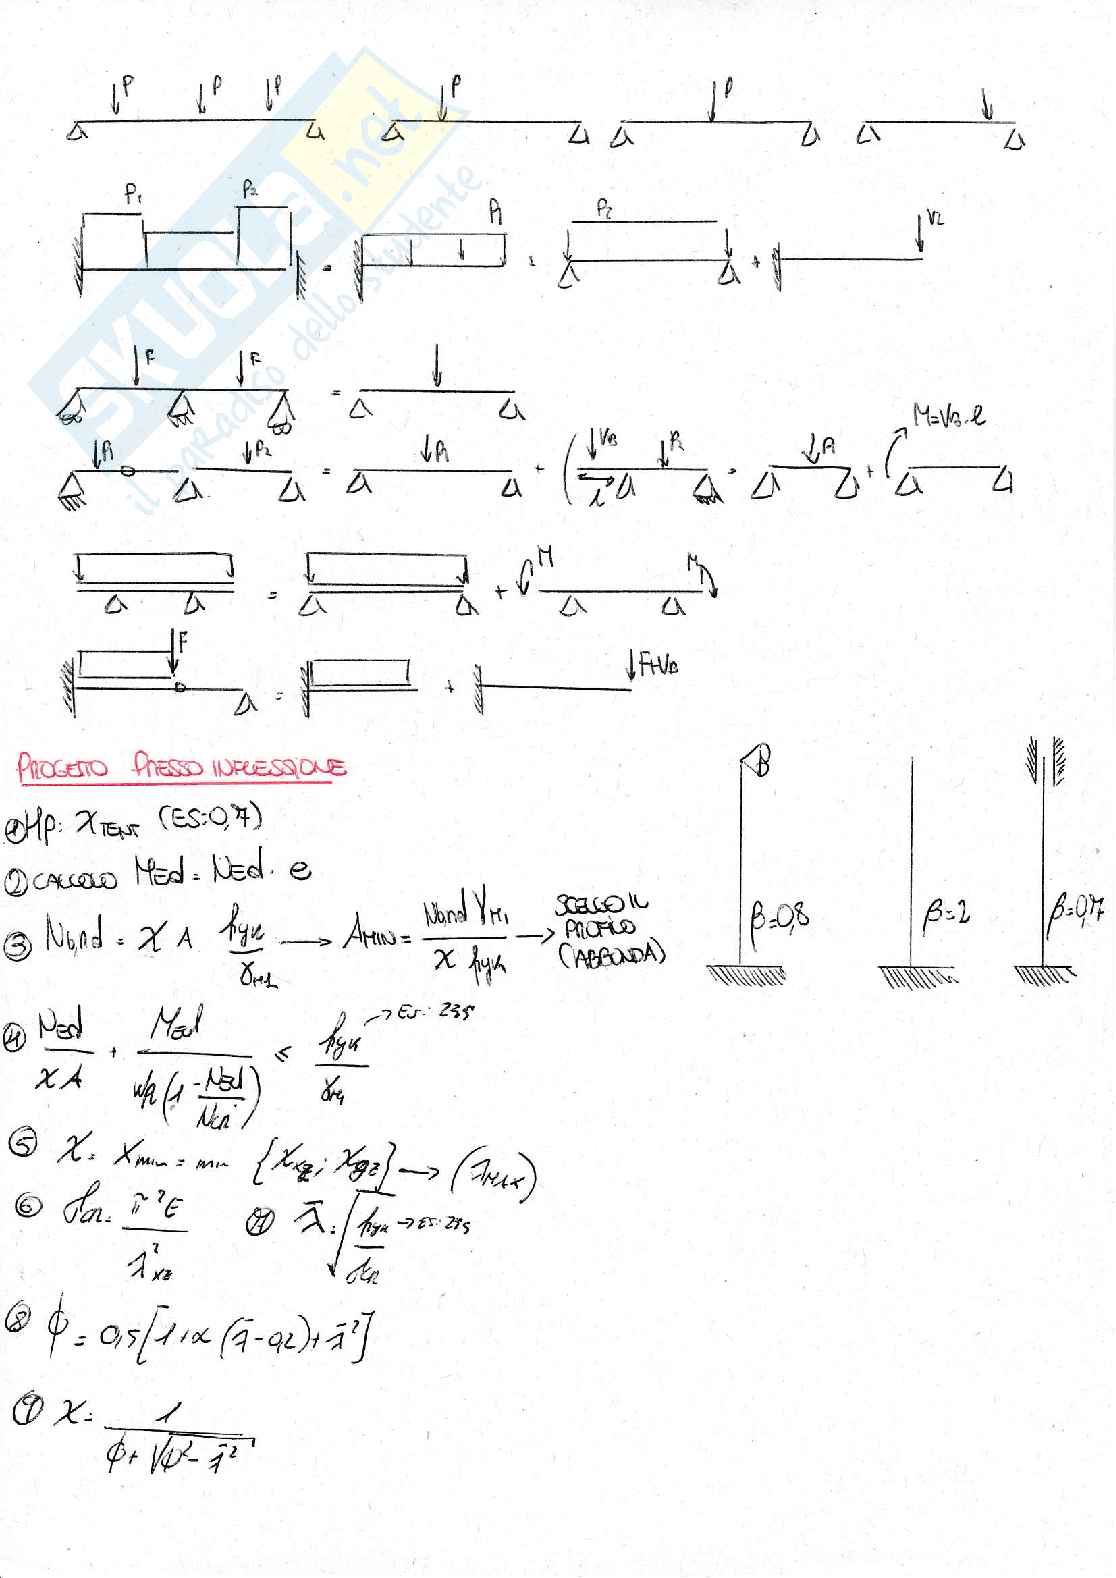 P P P P P
P₁ P₂ P₁ P₂ V₂
= = +
SKUOLA.net
il paradiso dello studente
F F =
P₁ P₂ = P₁ + ( V_B P₂ = P₁ + M=V_B·l
l
= + M M
F = + F+V_B
PROGETTO PRESSO INFLESSIONE
① Hp: χ_TENT (ES:0,7)
② CALCOLO M_Ed = N_Ed · e
③ N_b,rd = χ A f_yk/γ_M1 → A_MIN = N_b,rd γ_M1 / χ f_yk → SCELGO IL PROFILO (ABBONDA)
④ N_Ed/χA + M_Ed/W_pl(1 - N_Ed/N_cr) ≤ f_yk/γ_M1 → ES: 235
⑤ χ = χ_min = min {χ_xz ; χ_yz} → (λ_MAX)
⑥ σ_cr = π²E/λ²_xz ⑦ λ̄ = √(f_yk/σ_cr) → ES: 235
⑧ ϕ = 0,5[1+α(λ̄-0,2)+λ̄²]
⑨ χ = 1/(ϕ+√(ϕ²-λ̄²))
B
β=0,8 β=2 β=0,7